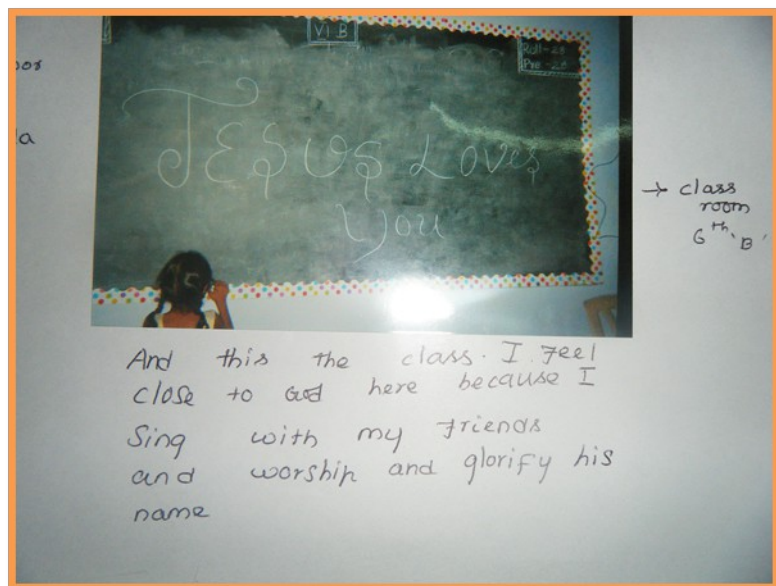 VI B
Roll-28
Pre -28
Jesus Loves
You
→ class
room
6th 'B'
And this the class. I feel
close to God here because I
Sing with my friends
and worship and glorify his
name